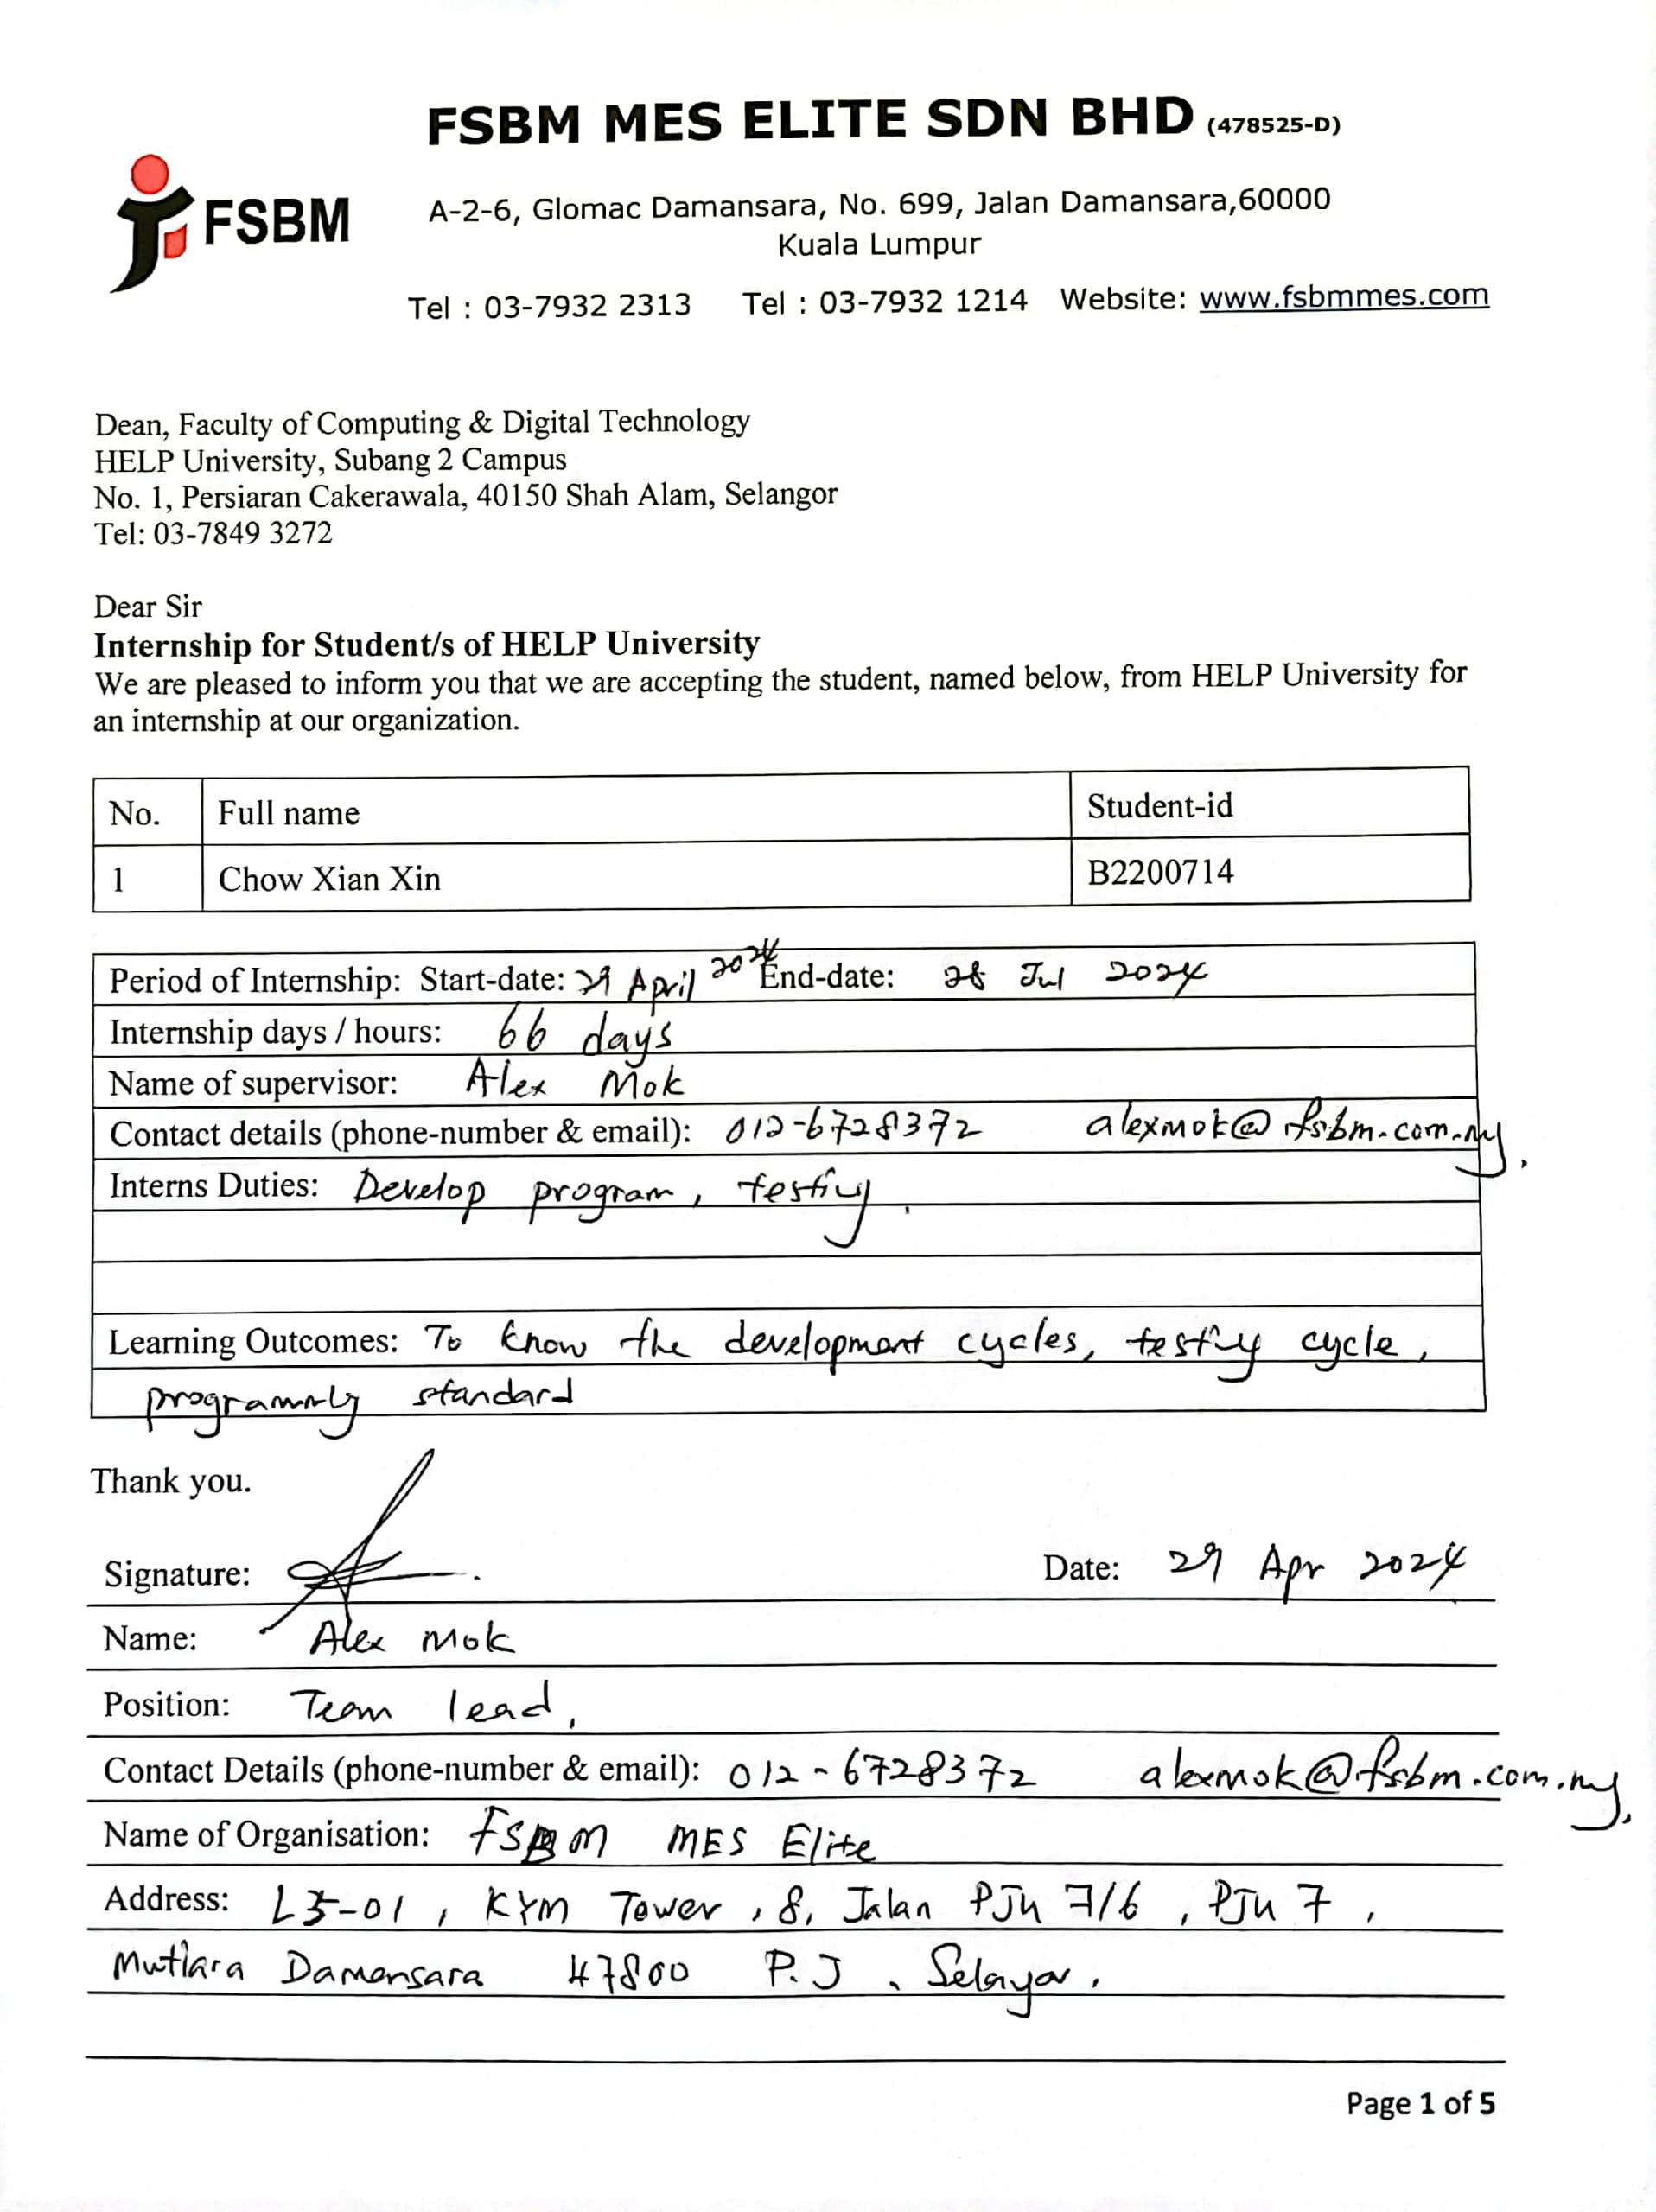 FSBM MES ELITE SDN BHD (478525-D)
FSBM
A-2-6, Glomac Damansara, No. 699, Jalan Damansara,60000
Kuala Lumpur
Tel : 03-7932 2313 Tel : 03-7932 1214 Website: www.fsbmmes.com
Dean, Faculty of Computing & Digital Technology
HELP University, Subang 2 Campus
No. 1, Persiaran Cakerawala, 40150 Shah Alam, Selangor
Tel: 03-7849 3272
Dear Sir
Internship for Student/s of HELP University
We are pleased to inform you that we are accepting the student, named below, from HELP University for
an internship at our organization.
No. Full name Student-id
1 Chow Xian Xin B2200714
Period of Internship: Start-date: 29 April 2024 End-date: 28 Jul 2024
Internship days / hours: 66 days
Name of supervisor: Alex Mok
Contact details (phone-number & email): 012-6728372 alexmok@fsbm.com.my.
Interns Duties: Develop program, testing.
Learning Outcomes: To know the development cycles, testing cycle,
programming standard
Thank you.
Signature: Date: 29 Apr 2024
Name: Alex Mok
Position: Team lead,
Contact Details (phone-number & email): 012-6728372 alexmok@fsbm.com.my.
Name of Organisation: FSBM MES Elite
Address: L5-01, KYM Tower, 8, Jalan PJU 7/6, PJU 7,
Mutiara Damansara 47800 P.J, Selangor.
Page 1 of 5